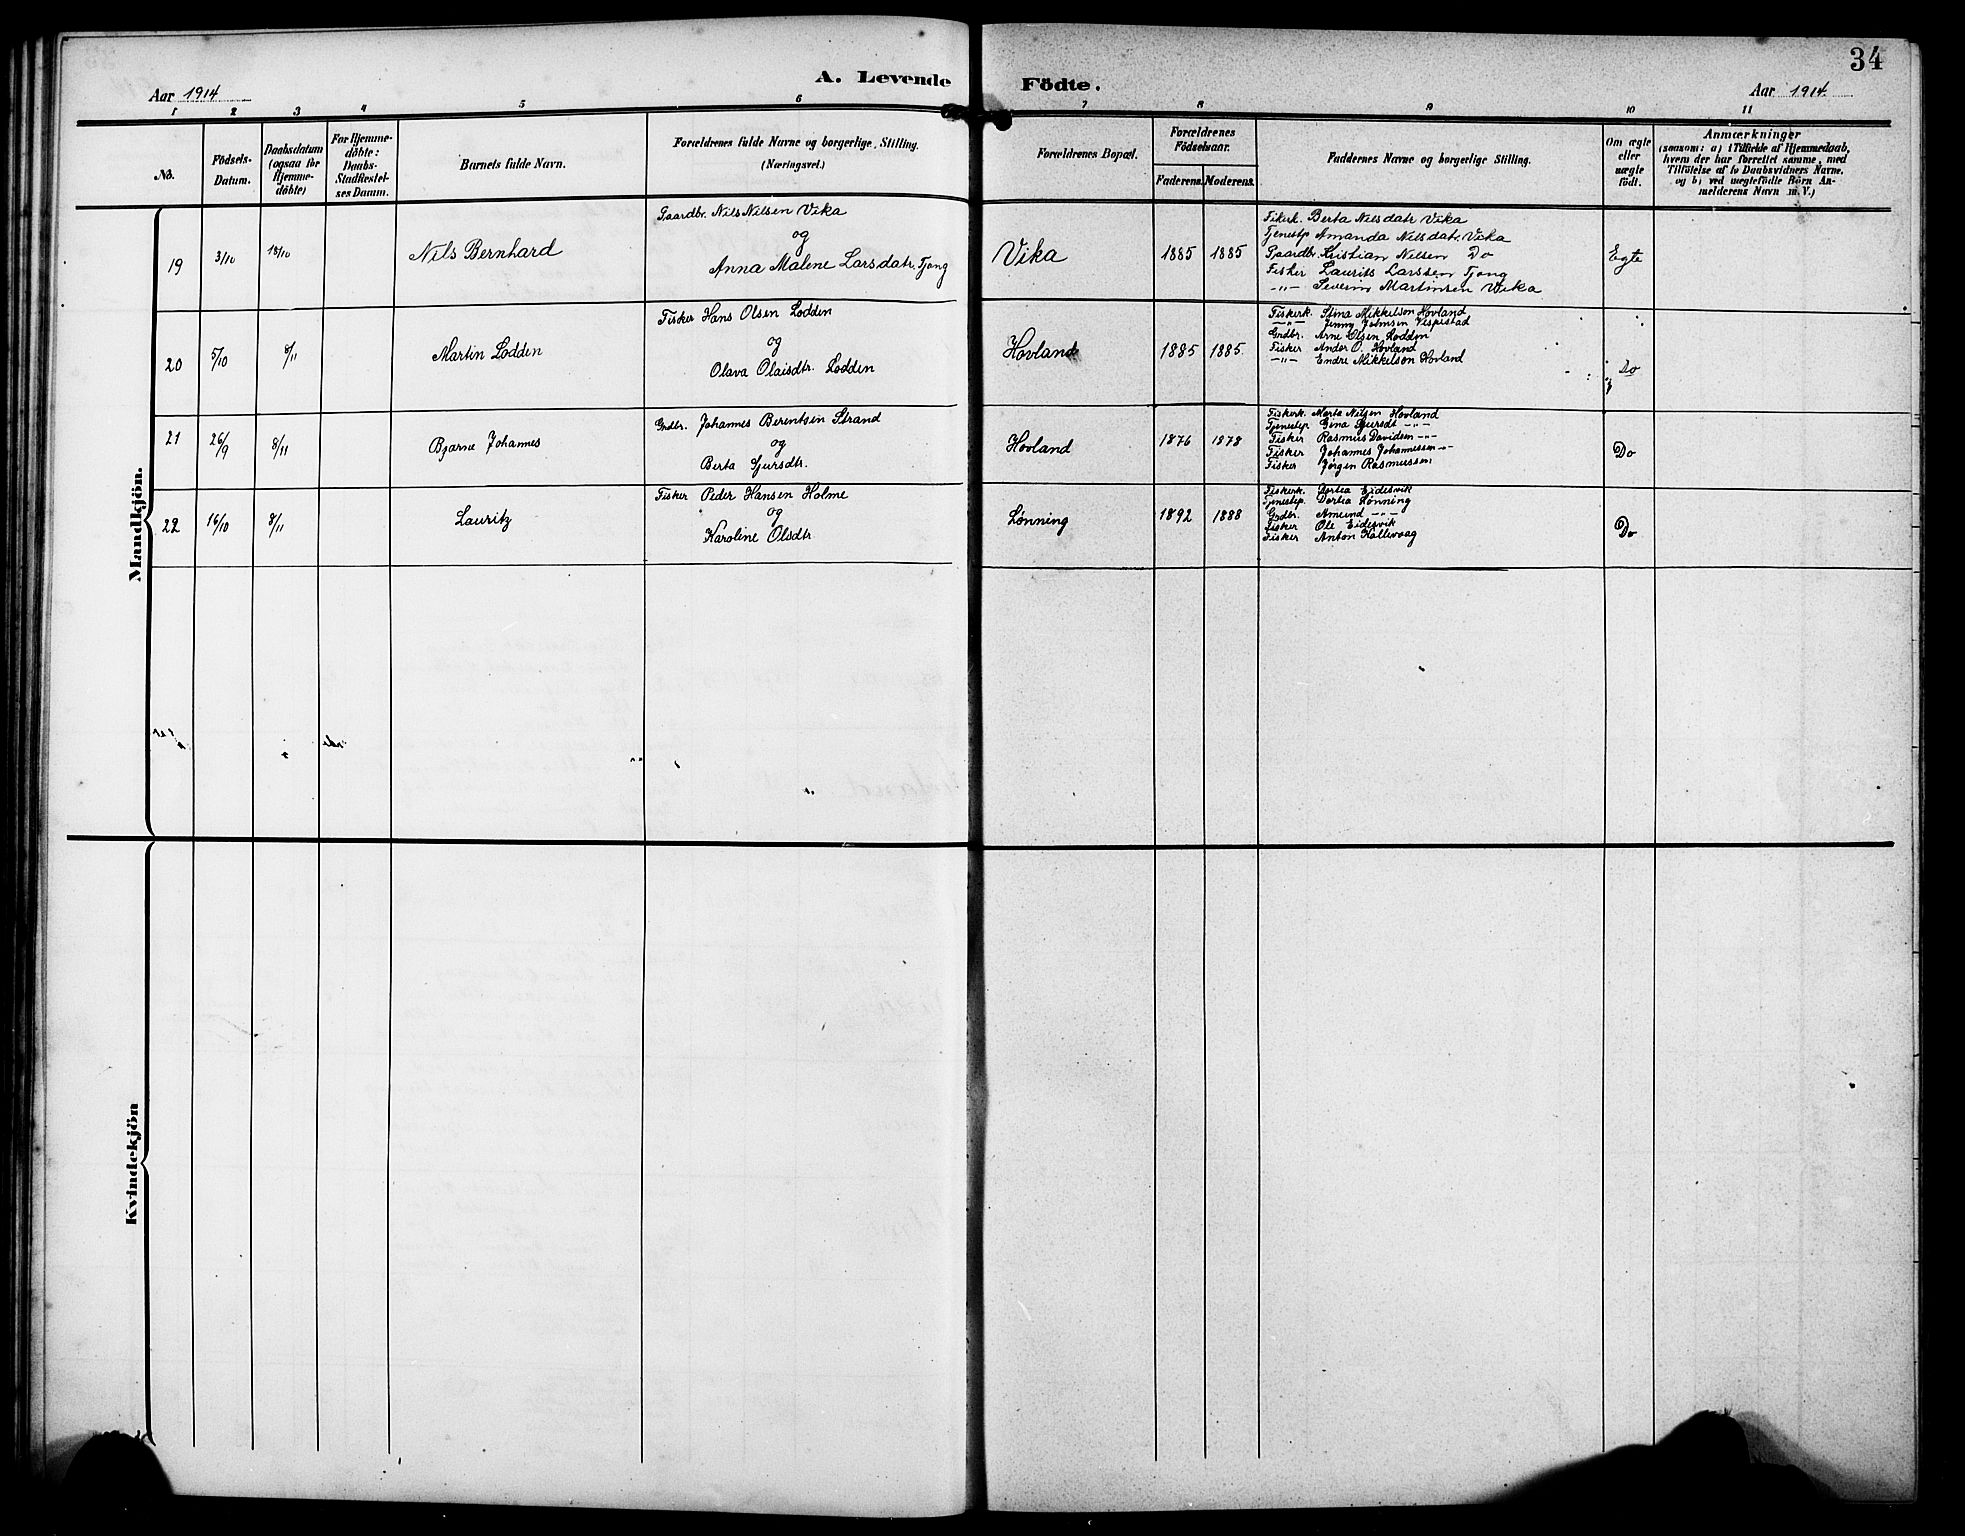 34
A. Levende Födte.
Aar 1914
Aar 1914.
1 2 3 4 5 6 7 8 9 10 11
No.
Födsels-
Datum.
Daabsdatum
(ogsaa for
Hjemme-
döbte)
For Hjemme-
döbte:
Daabs-
Stadfæstel-
ses Datum.
Barnets fulde Navn.
Forældrenes fulde Navne og borgerlige Stilling.
(Næringsvei.)
Forældrenes Bopæl.
Forældrenes
Födselsaar.
Faderens. Moderens.
Faddernes Navne og borgerlige Stilling.
Om ægte
eller
uægte
födt.
Anmærkninger
(saasom: a) i Tilfælde af Hjemmedaab,
hvem der har forrettet samme, med
Tilföielse af to Daabsvidners Navne,
og b) ved uægtefödte Börn An-
melderens Navn m. V.)
Mandkjön.
19 3/10 18/10 Nils Bernhard
Gaardbr. Nils Nilsen Vika
og
Anna Malene Larsdatr. Tjong
Vika 1885 1885
Fiskerk. Berta Nilsdatr Vika
Tjenestp Amanda Nilsdatr. Vika
Gaardbr. Kristian Nilsen Do
Fisker Laurits Larssen Tjong
-"- Severin Martinsen Vika
Egte
20 5/10 8/11 Martin Lodden
Fisker Hans Olsen Lodden
og
Olava Olaisdtr. Lodden
Hovland 1885 1885.
Fiskerk. Stina Mikkelsen Hovland
-"- Jenny Johnsen Vespestad
Grdbr. Arne Olsen Lodden
Fisker Ander O. Hovland
-"- Endre Mikkelsen Hovland
Do
21 26/9 8/11 Bjarne Johannes
Grdbr. Johannes Berentsen Strand
og
Berta Sjursdtr.
Hovland 1876 1878
Fiskerk. Marta Nilsen Hovland
Tjenestep Gina Sjursdt -"-
Fisker Rasmus Davidsen -"-
Fisker Johannes Johannessen -"-
Fisker Jørgen Rasmussen
Do
22 16/10 8/11 Lauritz
Fisker Peder Hansen Holme
og
Karoline Olsdtr
Lønning 1892 1888
Fiskerk. Dortea Eidesvik
Tjenestep. Dortea Lønning
Grdbr. Amund -"-
Fisker Ole Eidesvik
Fisker Anton Kallevaag
Do
Kvindekjön